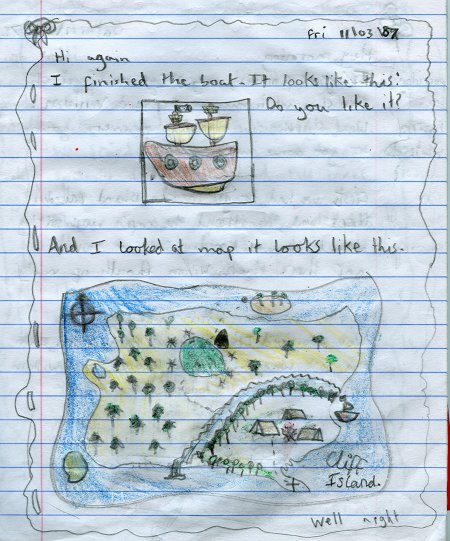 Fri 11/03/87
Hi again
I finished the boat. It looks like this:
Do you like it?
And I looked at map it looks like this.
Cliff
Island.
Well night